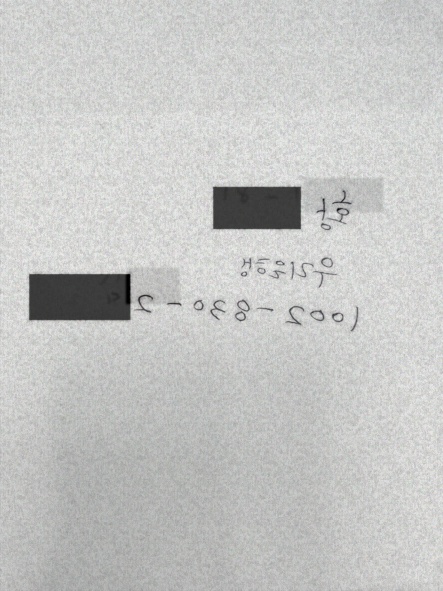 우리은행
1002-830-2